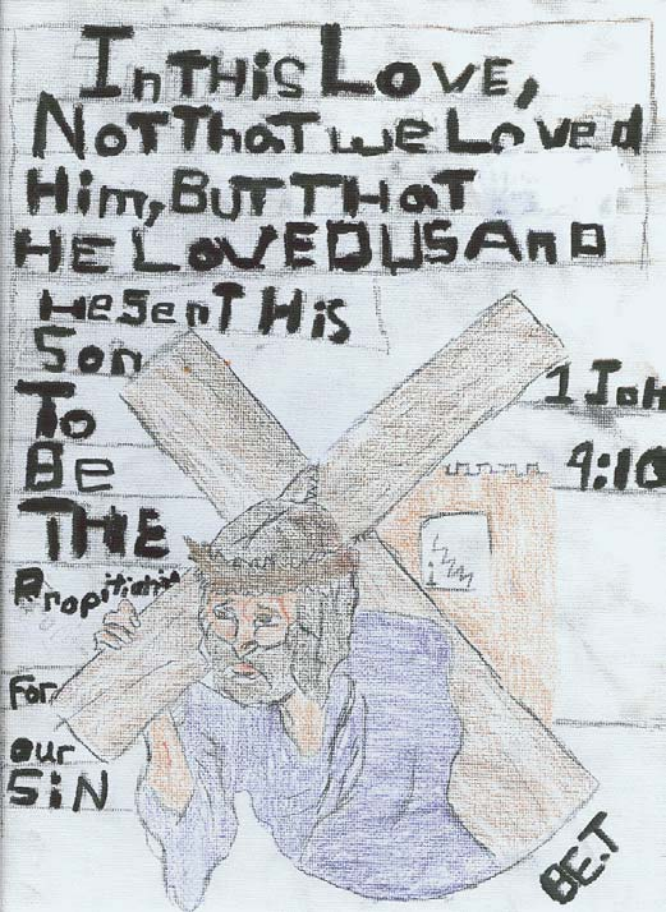 In THiS LOVE,
NoTThaT we Loved
Him, BuT THaT
HE LOVED US AnD
HeSenT HiS
Son
To
Be
THE
Propitiatio
For
our
SiN
1 Joh
4:10
BE.T